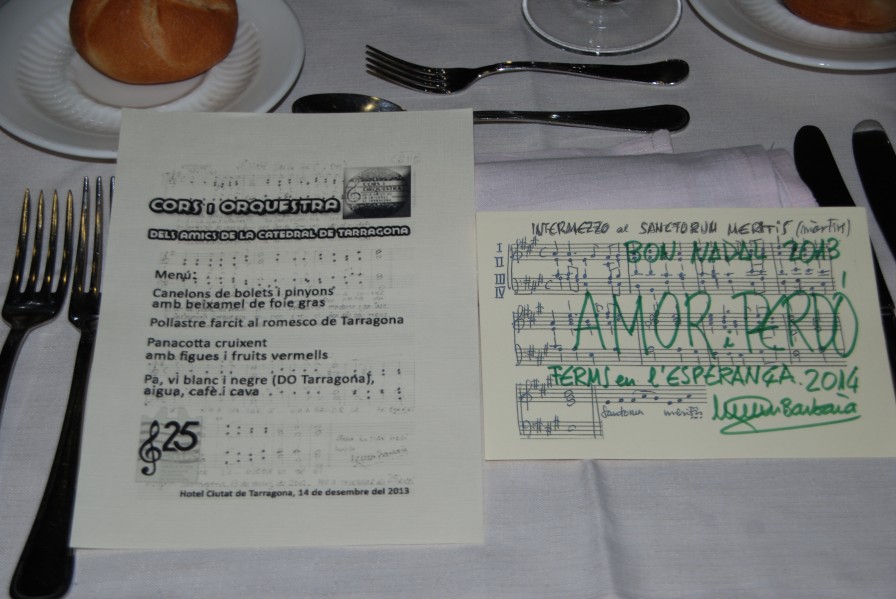 CORS i ORQUESTRA
DELS AMICS DE LA CATEDRAL DE TARRAGONA
Menú:
Canelons de bolets i pinyons
amb beixamel de foie gras
Pollastre farcit al romesco de Tarragona
Panacotta cruixent
amb figues i fruits vermells
Pa, vi blanc i negre (DO Tarragona),
aigua, cafè i cava
25
Hotel Ciutat de Tarragona, 14 de desembre del 2013
INTERMEZZO al SANCTORUM MERITIS (màrtirs)
I
II
III
IV
BON NADAL 2013
AMOR i PERDÓ
FERMS en l'ESPERANÇA. 2014
Sanctorum méritis
Barbarà